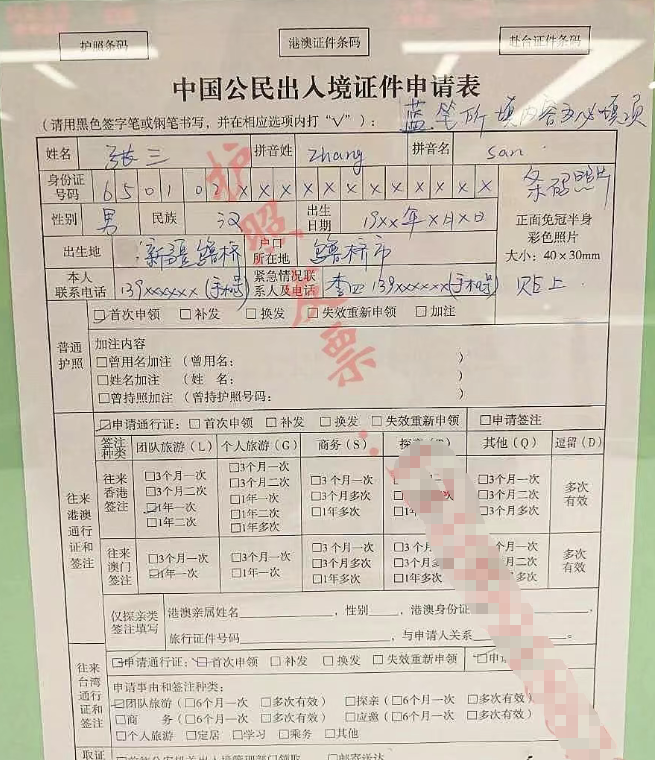 护照条码 港澳证件条码 赴台证件条码
中国公民出入境证件申请表
(请用黑色签字笔或钢笔书写,并在相应选项内打“√”): 蓝笔所填内容为必填项
姓名 张三 拼音姓 zhang 拼音名 san
身份证号码 650102XXXXXXXXXXXX 条码照片
性别 男 民族 汉 出生日期 19XX年X月X日
正面免冠半身
彩色照片
大小:40×30mm
贴上
出生地 新疆 户口所在地
本人联系电话 139xxxxxx(手机号) 紧急情况联系人及电话 李四 139xxxxxx(手机号)
普通护照
☑首次申领 □补发 □换发 □失效重新申领 □加注
加注内容
□曾用名加注(曾用名: )
□姓名加注(姓 名: )
□曾持照加注(曾持护照号码: )
往来港澳通行证和签注
☑申请通行证:□首次申领 □补发 □换发 □失效重新申领 □申请签注
签注种类 团队旅游(L) 个人旅游(G) 商务(S) 其他(Q) 逗留(D)
往来香港签注
□3个月一次 □3个月二次 ☑1年一次 □1年二次
□3个月一次 □3个月二次 □1年一次 □1年二次 □1年多次
□3个月一次 □3个月多次 □1年多次
□3个月一次
□3个月一次 □3个月二次 □3个月多次
多次有效
往来澳门签注
□3个月一次 ☑1年一次
□3个月一次 □1年一次
□3个月一次 □3个月多次 □1年多次
□3个月一次 □3个月多次 □1年多次
个月一次 个月二次 个月多次
多次有效
仅探亲类签注填写
港澳亲属姓名 ,性别 ,港澳身份证
旅行证件号码 ,与申请人关系 。
往来台湾通行证和签注
☑申请通行证:☑首次申领 □补发 □换发 □失效重新申领
申请事由和签注种类:
☑团队旅游(□6个月一次 □多次有效) □探亲(□6个月一次 □多次有效)
□商 务(□6个月一次 □多次有效) □应邀(□6个月一次 □多次有效)
□个人旅游 □定居 □学习 □乘务 □其他
取证
护照
票